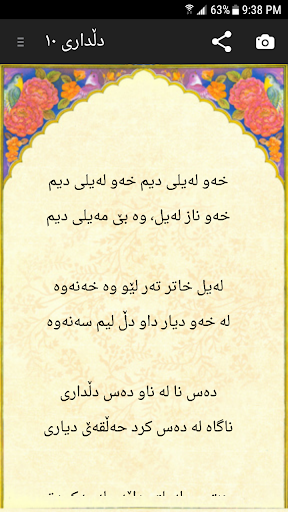 63% 9:38 PM
دڵداری ١٠
خەو لەیلی دیم خەو لەیلی دیم
خەو ناز لەیل، وە بێ مەیلی دیم
لەیل خاتر تەر لێو وە خەنەوە
لە خەو دیار داو دڵ لیم سەنەوە
دەس نا لە ناو دەس دڵداری
ناگاە لە دەس کرد حەڵقەێ دیاری